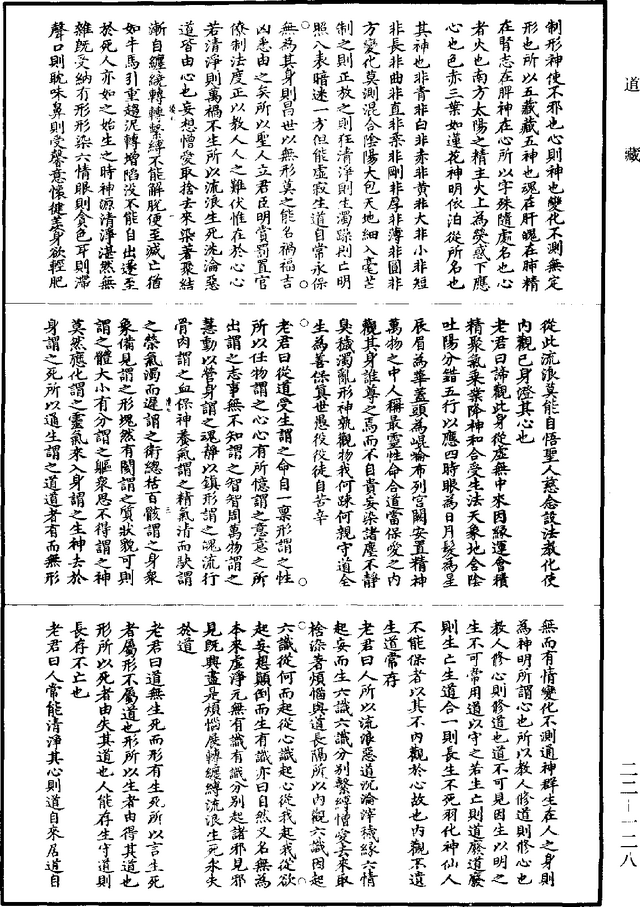 道藏
制形神使不邪也心則神也變化不測無定
形也所以五藏藏五神也魂在肝魄在肺精
在腎志在脾神在心所以字殊隨處名也心
者火也南方太陽之精主火上為熒惑下應
心也色赤三葉如蓮花神明依泊從所名也
其神也非青非白非赤非黃非大非小非短
非長非曲非直非柔非剛非厚非薄非圓非
方變化莫測混合陰陽大包天地細入毫芒
制之則正放之則狂清淨則生濁躁則亡明
照八表暗迷一方但能虛寂生道自常永保
無為其身則昌世以無形莫之能名禍福吉
凶悉由之矣所以聖人立君臣明賞罰置官
僚制法度正以教人人之難伏惟在於心心
若清淨則萬禍不生所以流浪生死沉淪惡
道皆由心也妄想憎愛取捨去來染著聚結
漸自纏繞轉轉繫縛不能解脫便至滅亡猶
如牛馬引重趨泥轉增陷沒不能自出遂至
於死人亦如之始生之時神源清淨湛然無
雜既受納有形形染六情眼則貪色耳則滯
聲口則耽味鼻則受馨意懷健羨身欲輕肥
從此流浪莫能自悟聖人慈念設法教化使
內觀己身澄其心也
老君曰諦觀此身從虛無中來因緣運會積
精聚氣乘業降神和合受生法天象地含陰
吐陽分錯五行以應四時眼為日月髮為星
辰眉為華蓋頭為崐崘布列宮闕安置精神
萬物之中人稱最靈性命合道當保愛之內
觀其身誰尊之焉而不自貴妄染諸塵不靜
臭穢濁亂形神孰觀物我何疎何親守道全
生為善保真世愚役役徒自苦辛
老君曰從道受生謂之命自一稟形謂之性
所以任物謂之心心有所憶謂之意意之所
出謂之志事無不知謂之智智周萬物謂之
慧動以營身謂之魂靜以鎮形謂之魄流行
骨肉謂之血保神養氣謂之精氣清而駃謂
之榮氣濁而遲謂之衛總括百骸謂之身眾
象備見謂之形塊然有閡謂之質狀貌可則
謂之體大小有分謂之軀眾思不得謂之神
莫然應化謂之靈氣來入身謂之生神去於
身謂之死所以通生謂之道道者有而無形
無而有情變化不測通神群生在人之身則
為神明所謂心也所以教人修道則修心也
教人修心則修道也道不可見因生以明之
生不可常用道以守之若生亡則道廢道廢
則生亡生道合一則長生不死羽化神仙人
不能保者以其不內觀於心故也內觀不遺
生道常存
老君曰人所以流浪惡道沉淪滓穢緣六情
起妄而生六識六識分別繫縛憎愛去來取
捨染著煩惱與道長隔所以內觀六識因起
六識從何而起從心識起心從我起我從欲
起妄想顛倒而生有識亦曰自然又名無為
本來虛淨元無有識有識分別起諸邪見邪
見既興盡是煩惱展轉纏縛流浪生死永失
於道
老君曰道無生死而形有生死所以言生死
者屬形不屬道也形所以生者由得其道也
形所以死者由失其道也人能存生守道則
長存不亡也
老君曰人常能清淨其心則道自來居道自
二二—一二八